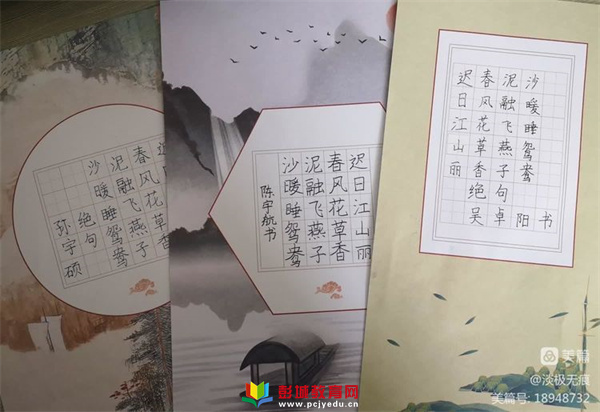 春风花草香
泥融飞燕子
沙暖睡鸳鸯
绝句
孙宇硕
迟日江山丽
春风花草香
泥融飞燕子
沙暖睡鸳鸯
陈宇航书
迟日江山丽
春风花草香
泥融飞燕子
沙暖睡鸳鸯
绝句
吴卓阳书
彭城教育网
www.pcjyedu.cn
美篇
@淡极无痕
美篇号: 18948732